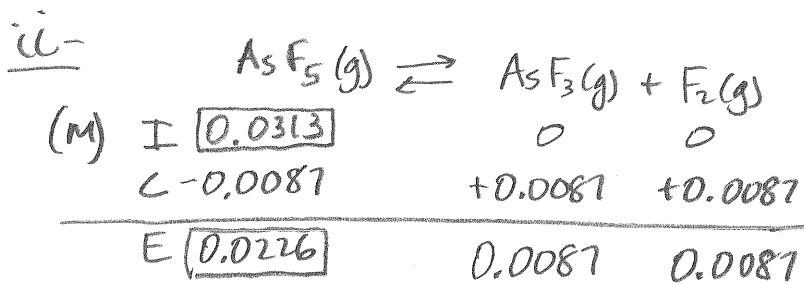 ii-
AsF₅(g) ⇌ AsF₃(g) + F₂(g)
(M) I 0.0313 0 0
C -0.0087 +0.0087 +0.0087
E 0.0226 0.0087 0.0087